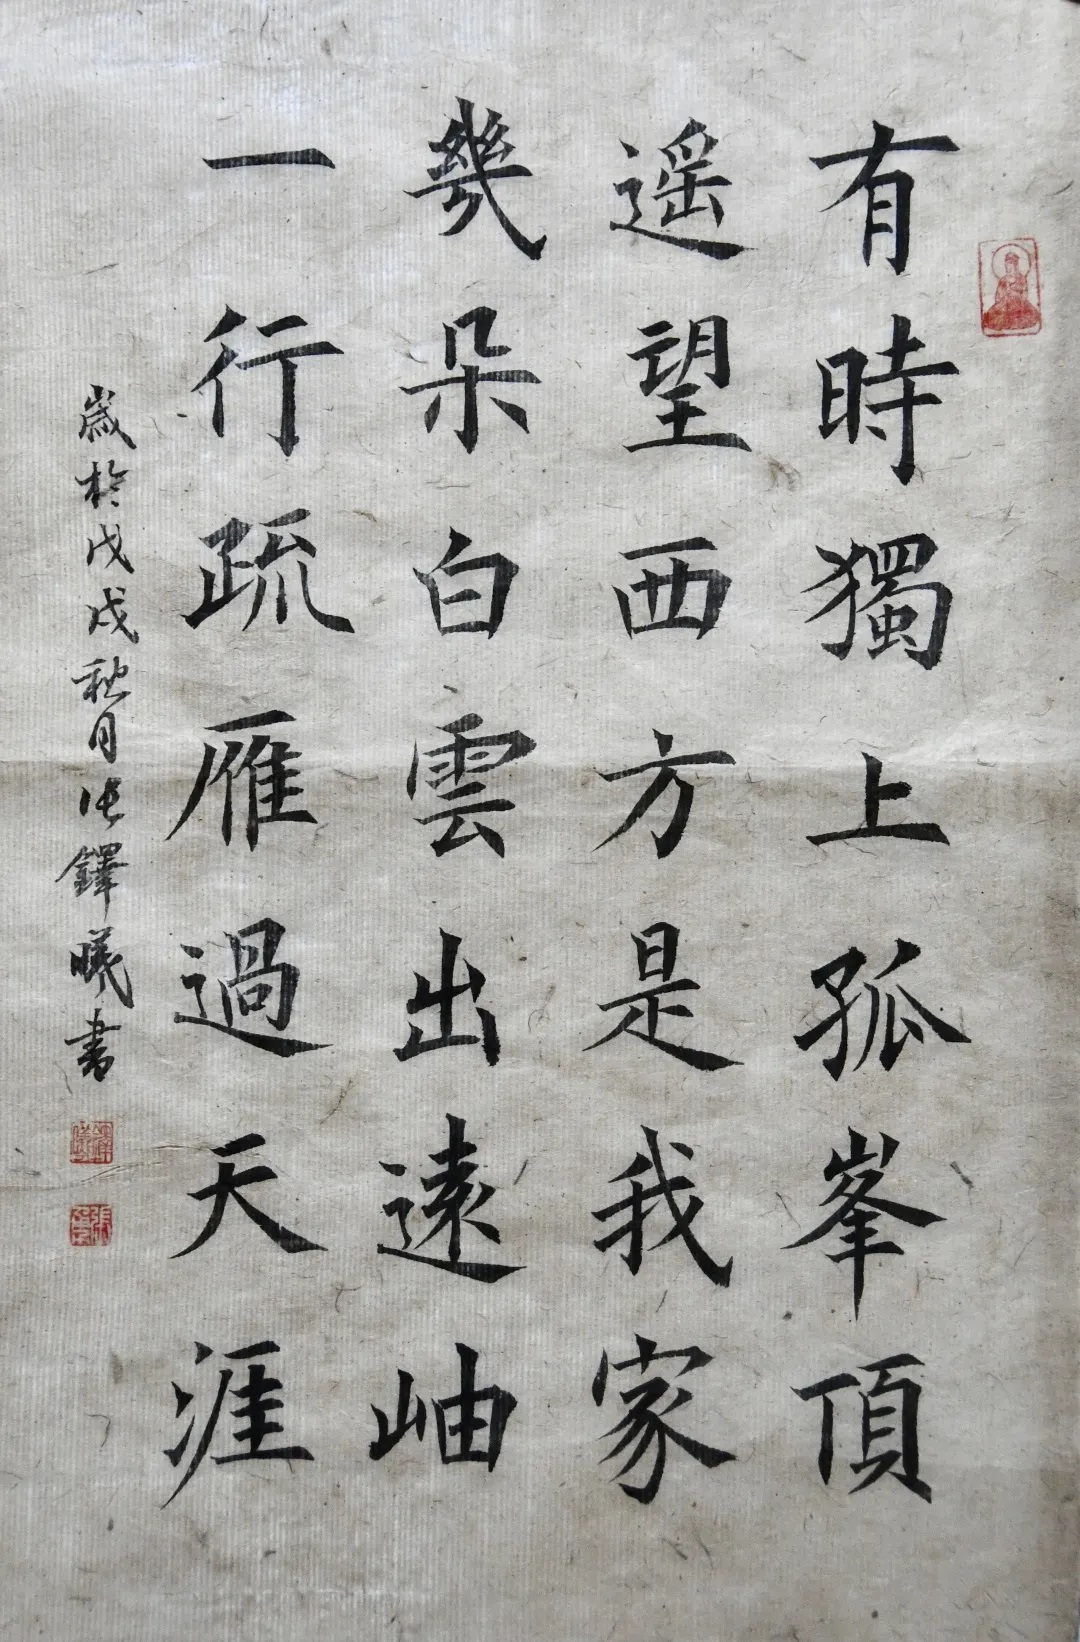 有時獨上孤峯頂
遥望西方是我家
幾朵白雲出遠岫
一行疏雁過天涯
歲於戊戌秋月張鐸曦書